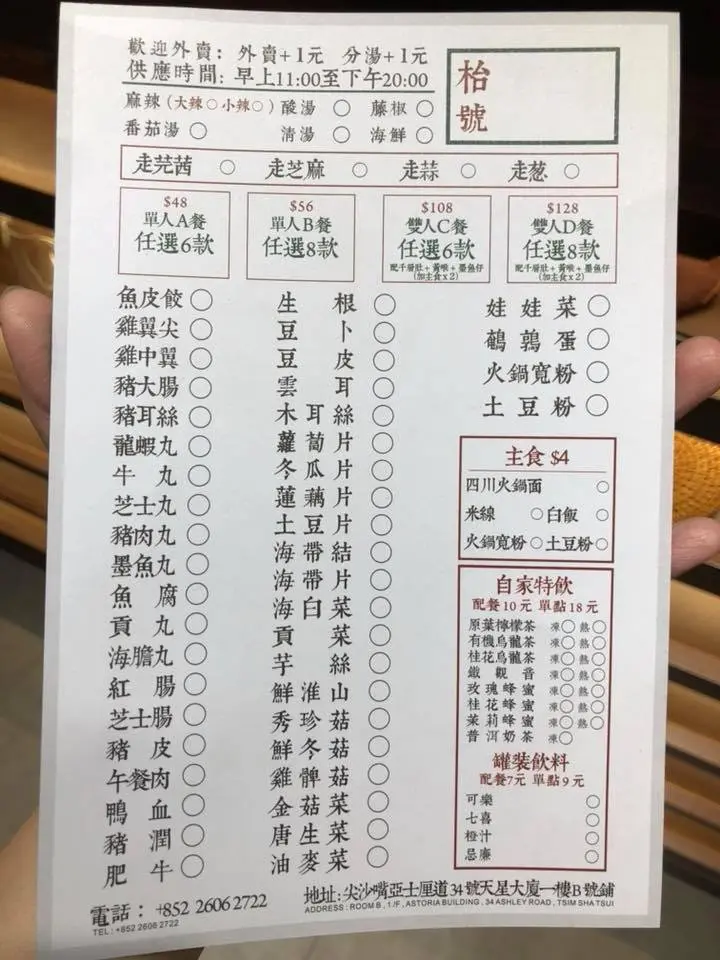 歡迎外賣：外賣+1元 分湯+1元
供應時間：早上11:00至下午20:00
枱號
麻辣（大辣○小辣○）酸湯 ○ 藤椒 ○
番茄湯 ○ 清湯 ○ 海鮮 ○
走芫茜 ○ 走芝麻 ○ 走蒜 ○ 走葱 ○
$48
單人A餐
任選6款
$56
單人B餐
任選8款
$108
雙人C餐
任選6款
配千層肚+黃喉+墨魚仔
(加主食x2)
$128
雙人D餐
任選8款
配千層肚+黃喉+墨魚仔
(加主食x2)
魚皮餃 ○
雞翼尖 ○
雞中翼 ○
豬大腸 ○
豬耳絲 ○
龍蝦丸 ○
牛丸 ○
芝士丸 ○
豬肉丸 ○
墨魚丸 ○
魚腐 ○
貢丸 ○
海膽丸 ○
紅腸 ○
芝士腸 ○
豬皮 ○
午餐肉 ○
鴨血 ○
豬潤 ○
肥牛 ○
生根 ○
豆卜 ○
豆皮 ○
雲耳 ○
木耳絲 ○
蘿蔔片 ○
冬瓜片 ○
蓮藕片 ○
土豆片 ○
海帶結 ○
海帶片 ○
海白菜 ○
貢菜 ○
芋絲 ○
鮮淮山 ○
秀珍菇 ○
鮮冬菇 ○
雞髀菇 ○
金菇菜 ○
唐生菜 ○
油麥菜 ○
娃娃菜 ○
鵪鶉蛋 ○
火鍋寬粉 ○
土豆粉 ○
主食 $4
四川火鍋面 ○
米線 ○ 白飯 ○
火鍋寬粉 ○ 土豆粉 ○
自家特飲
配餐10元 單點18元
原葉檸檬茶 凍○ 熱○
有機烏龍茶 凍○ 熱○
桂花烏龍茶 凍○ 熱○
鐵觀音 凍○ 熱○
玫瑰蜂蜜 凍○ 熱○
桂花蜂蜜 凍○ 熱○
茉莉蜂蜜 凍○ 熱○
普洱奶茶 凍○
罐裝飲料
配餐7元 單點9元
可樂 ○
七喜 ○
橙汁 ○
忌廉 ○
電話：+852 2606 2722
TEL：+852 2606 2722
地址：尖沙嘴亞士厘道34號天星大廈一樓B號鋪
ADDRESS：ROOM B , 1/F , ASTORIA BUILDING , 34 ASHLEY ROAD , TSIM SHA TSUI